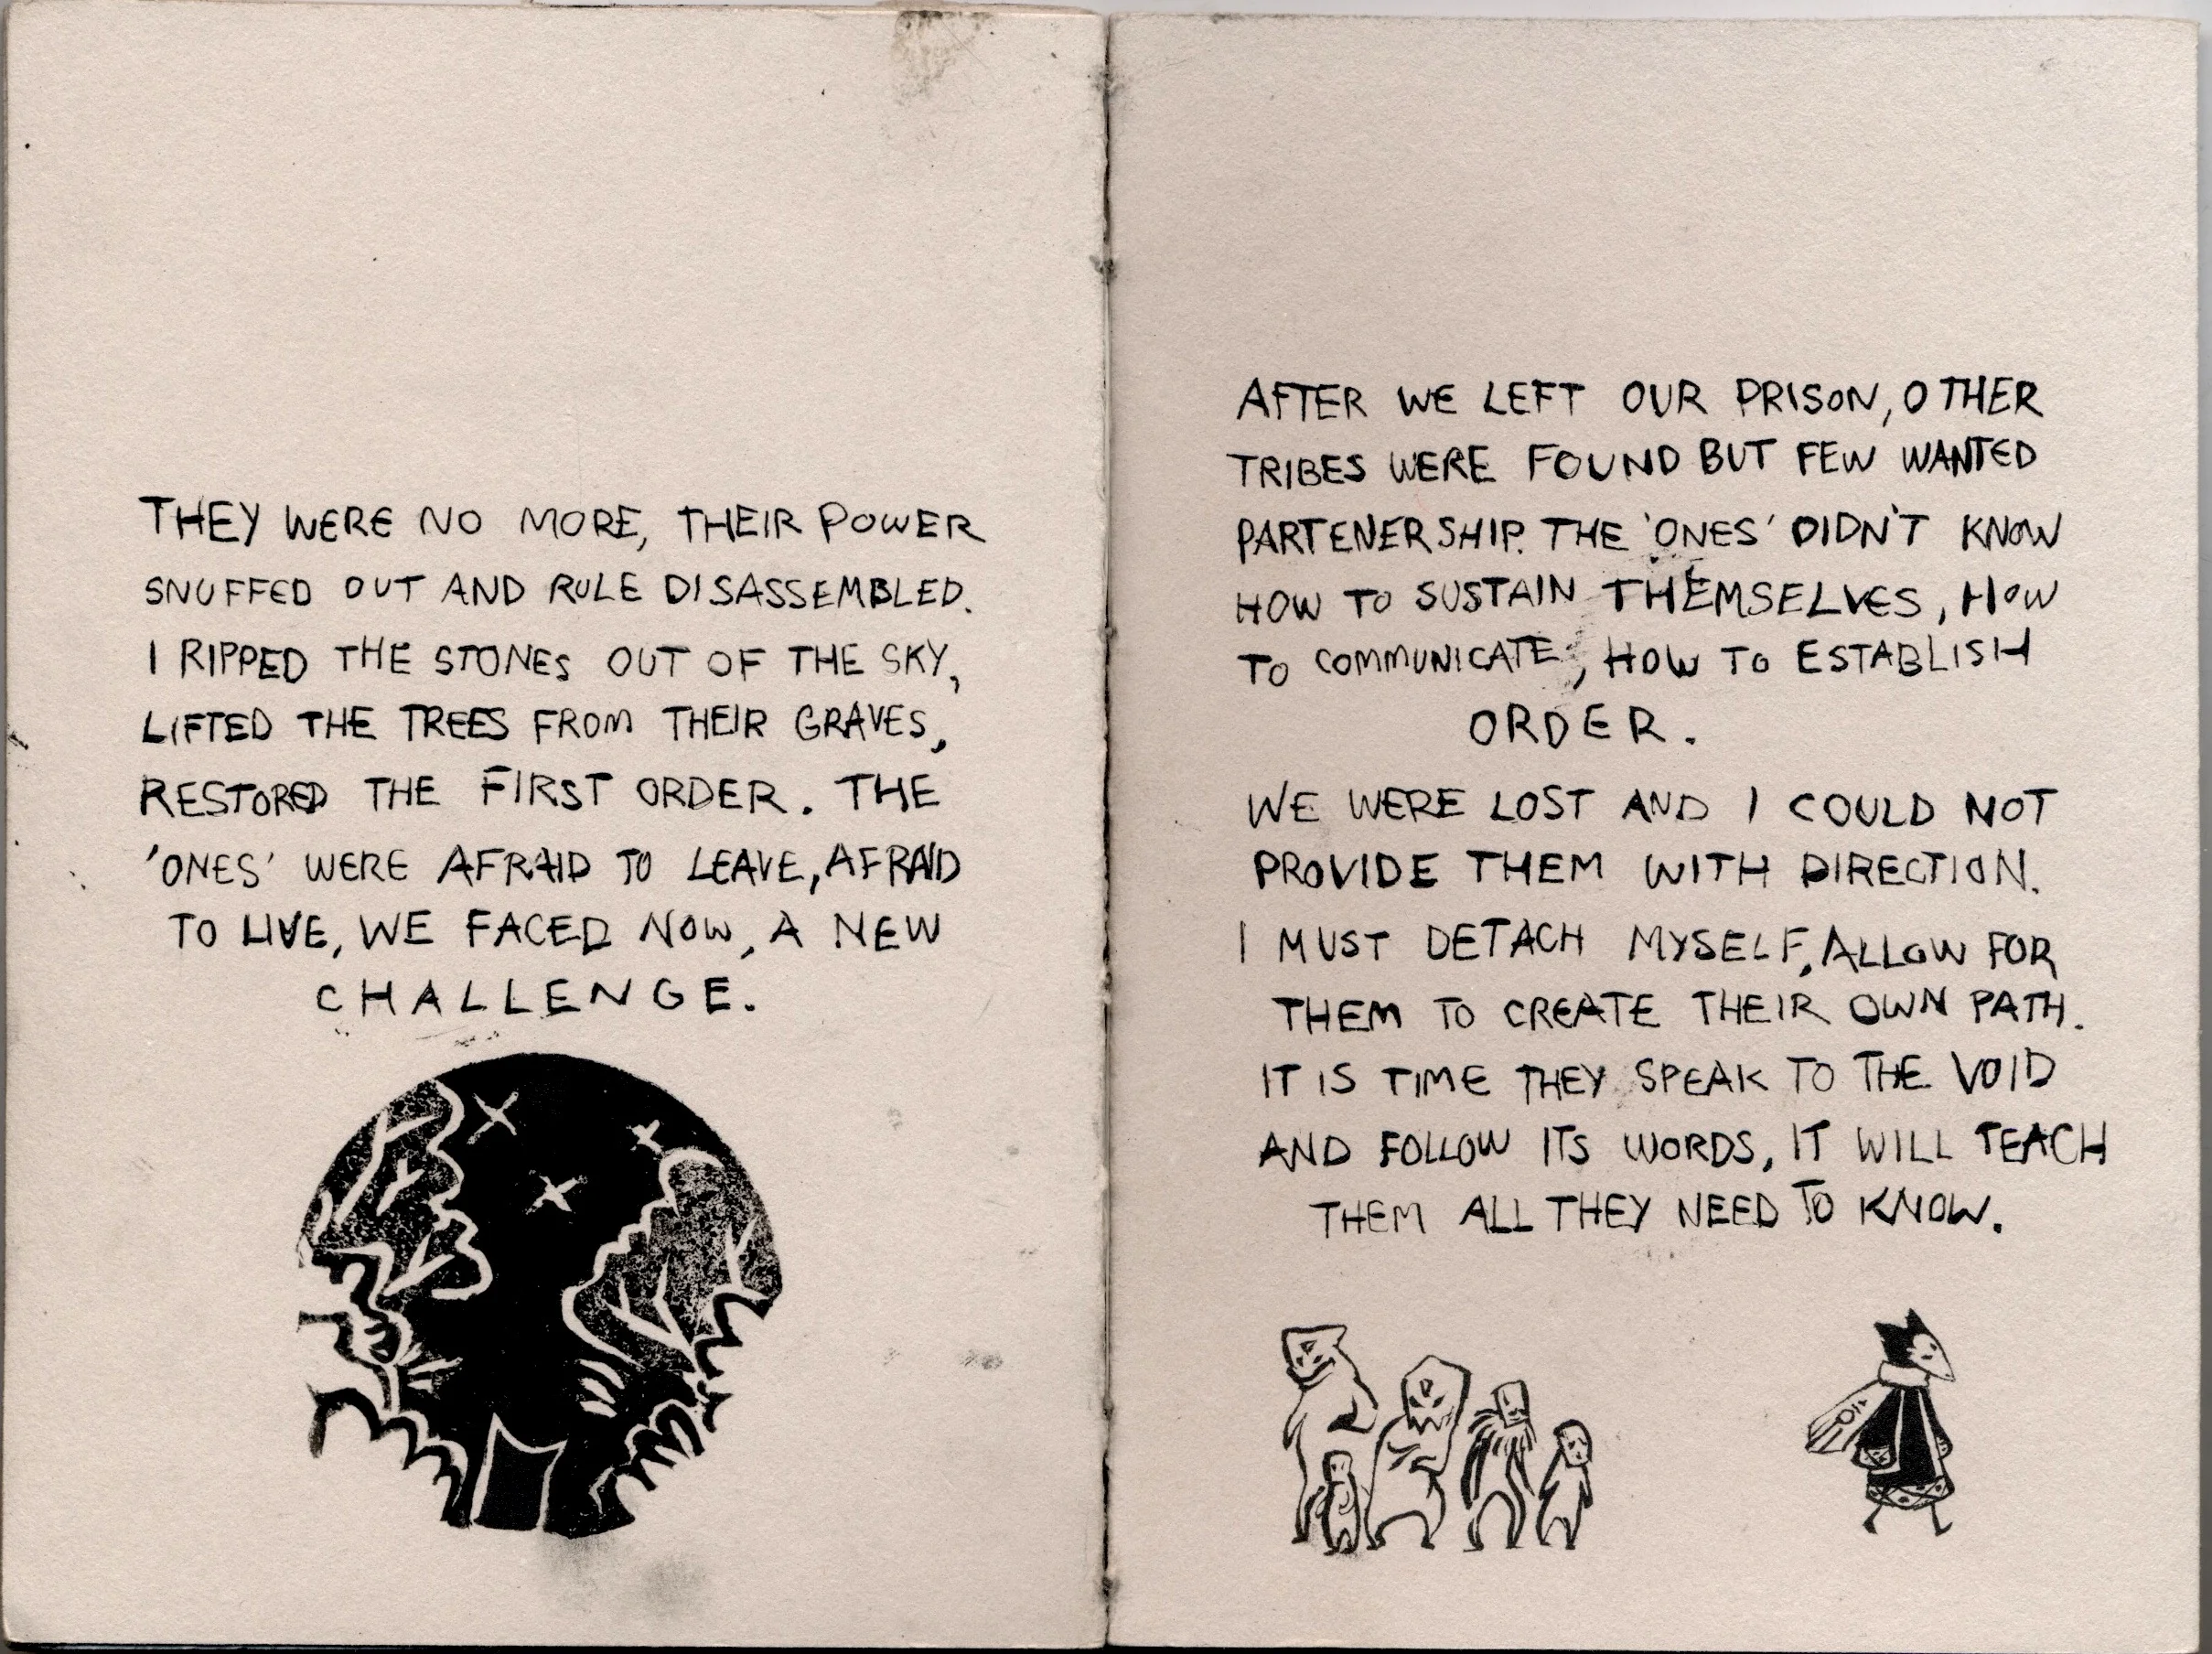 THEY WERE NO MORE, THEIR POWER
SNUFFED OUT AND RULE DISASSEMBLED.
I RIPPED THE STONES OUT OF THE SKY,
LIFTED THE TREES FROM THEIR GRAVES,
RESTORED THE FIRST ORDER. THE
'ONES' WERE AFRAID TO LEAVE, AFRAID
TO LIVE, WE FACED NOW, A NEW
CHALLENGE.
AFTER WE LEFT OUR PRISON, OTHER
TRIBES WERE FOUND BUT FEW WANTED
PARTENERSHIP. THE 'ONES' DIDN'T KNOW
HOW TO SUSTAIN THEMSELVES, HOW
TO COMMUNICATE, HOW TO ESTABLISH
ORDER.
WE WERE LOST AND I COULD NOT
PROVIDE THEM WITH DIRECTION.
I MUST DETACH MYSELF, ALLOW FOR
THEM TO CREATE THEIR OWN PATH.
IT IS TIME THEY SPEAK TO THE VOID
AND FOLLOW ITS WORDS, IT WILL TEACH
THEM ALL THEY NEED TO KNOW.